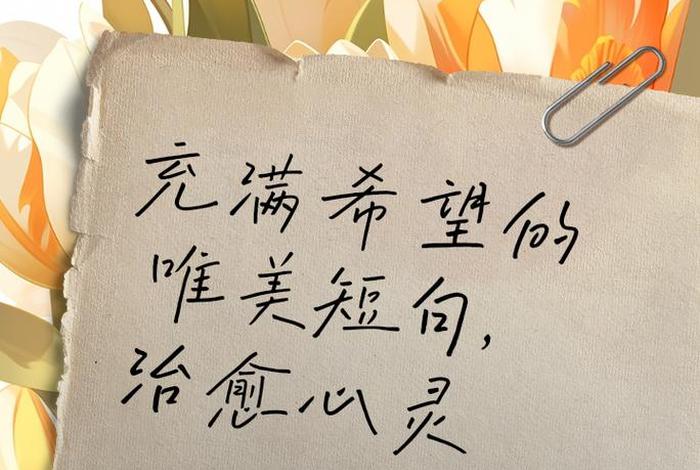 充满希望的
唯美短句，
治愈心灵